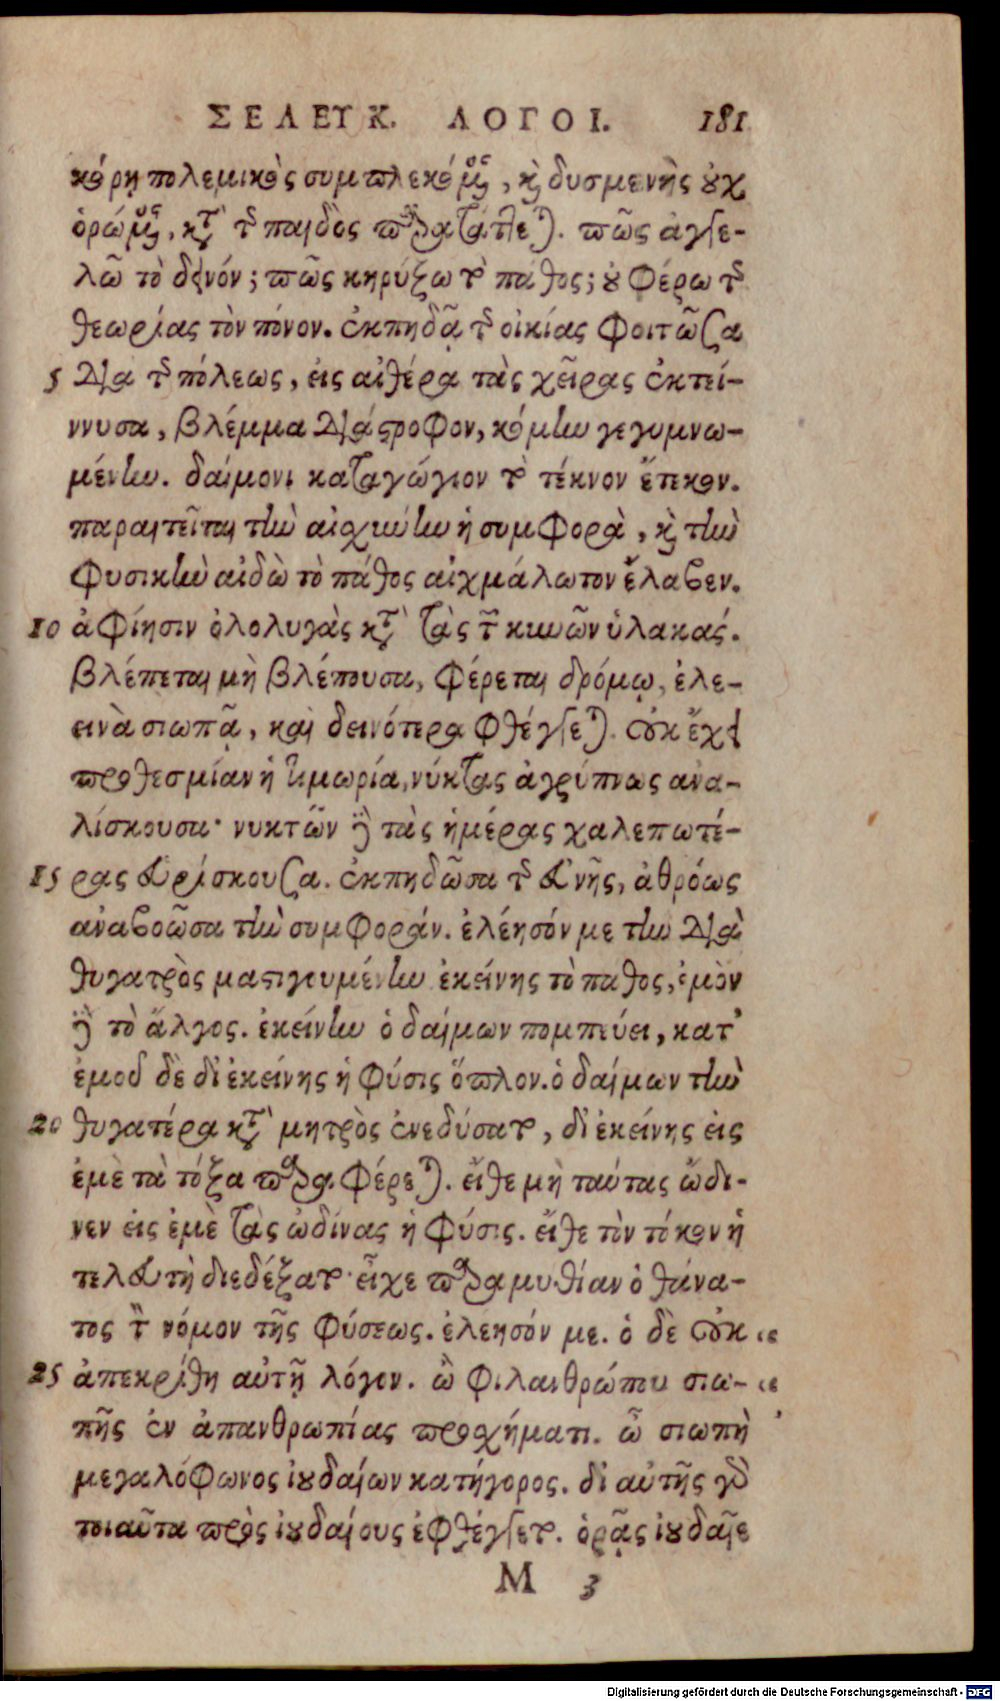 ΣΕΛΕΥΚ. ΛΟΓΟΙ. 181
κόρη πολεμικὸς συμπλεκόμενος, καὶ δυσμενὴς οὐχ
ὁρώμενος, κατὰ τῆς παιδὸς παρατάττεται. πῶς ἀγγε-
λῶ τὸ δεινόν; πῶς κηρύξω τὸ πάθος; οὐ φέρω τῆς
θεωρίας τὸν πόνον. ἐκπηδᾷ τῆς οἰκίας φοιτῶσα
5 διὰ τῆς πόλεως, εἰς αἰθέρα τὰς χεῖρας ἐκτεί-
ννυσα, βλέμμα διάστροφον, κόμην γεγυμνω-
μένην. δαίμονι καταγώγιον τὸ τέκνον ἔτεκον.
παραιτεῖται τὴν αἰσχύνην ἡ συμφορὰ, καὶ τὴν
φυσικὴν αἰδὼ τὸ πάθος αἰχμάλωτον ἔλαβεν.
10 ἀφίησιν ὀλολυγὰς κατὰ τὰς τῶν κυνῶν ὑλακάς.
βλέπεται μὴ βλέπουσα, φέρεται δρόμῳ, ἐλε-
εινὰ σιωπᾷ, καὶ δεινότερα φθέγγεται. οὐκ ἔχει
προθεσμίαν ἡ τιμωρία, νύκτας ἀγρύπνως ἀνα-
λίσκουσα· νυκτῶν δὲ τὰς ἡμέρας χαλεπωτέ-
15 ρας εὑρίσκουσα. ἐκπηδῶσα τῆς εὐνῆς, ἀθρόως
ἀναβοῶσα τὴν συμφοράν. ἐλέησόν με τὴν διὰ
θυγατρὸς μαστιγουμένην. ἐκείνης τὸ παθος, ἐμὸν
δὲ τὸ ἄλγος. ἐκείνην ὁ δαίμων πομπεύει, κατ'
ἐμοῦ δὲ δι' ἐκείνης ἡ φύσις ὅπλον. ὁ δαίμων τὴν
20 θυγατέρα κατὰ μητρὸς ἐνεδύσατο, δι' ἐκείνης εἰς
ἐμὲ τὰ τόξα παραφέρεται. εἴθε μὴ ταύτας ὤδι-
νεν εἰς ἐμὲ τὰς ὠδίνας ἡ φύσις. εἴθε τὸν τόκον ἡ
τελευτὴ διεδέξατο· εἶχε παραμυθίαν ὁ θάνα-
τος τὸν νόμον τῆς φύσεως. ἐλεησόν με. ὁ δὲ οὐκ „
25 ἀπεκρίθη αὐτῇ λόγον. ὢ φιλανθρώπου σιω- „
πῆς ἐν ἀπανθρωπίας προσχήματι. ὢ σιωπὴ
μεγαλόφωνος ἰουδαίων κατήγορος. δι' αὐτῆς γὰρ
τοιαῦτα πρὸς ἰουδαίους ἐφθέγγετο. ὁρᾷς ἰουδαῖε
M 3
Digitalisierung gefördert durch die Deutsche Forschungsgemeinschaft - DFG